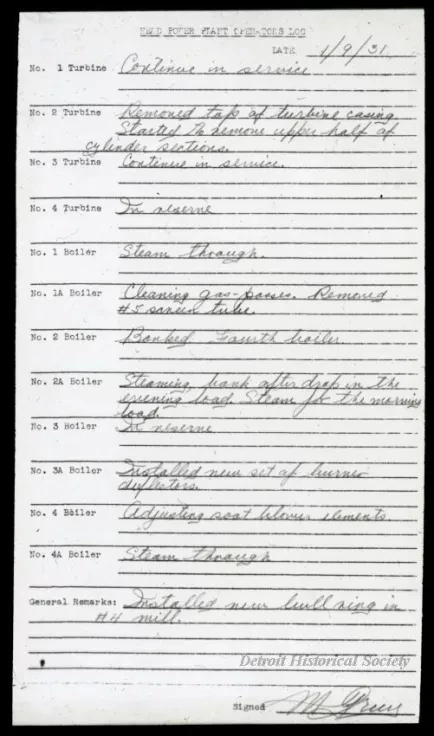 HEAD POWER PLANT OPERATORS LOG
DATE 1/9/31
No. 1 Turbine Continue in service
No. 2 Turbine Removed top of turbine casing.
Started to remove upper half of
cylinder sections.
No. 3 Turbine Continue in service.
No. 4 Turbine In reserve
No. 1 Boiler Steam through.
No. 1A Boiler Cleaning gas-passes. Removed
#5 screen tube.
No. 2 Boiler Banked Fourth boiler
No. 2A Boiler Steaming, bank after drop in the
evening load. Steam for the morning
load.
No. 3 Boiler In reserve
No. 3A Boiler Installed new set of burner
deflectors.
No. 4 Boiler Adjusting soot blower elements
No. 4A Boiler Steam through
General Remarks: Installed new bull ring in
#4 mill.
Detroit Historical Society
Signed M